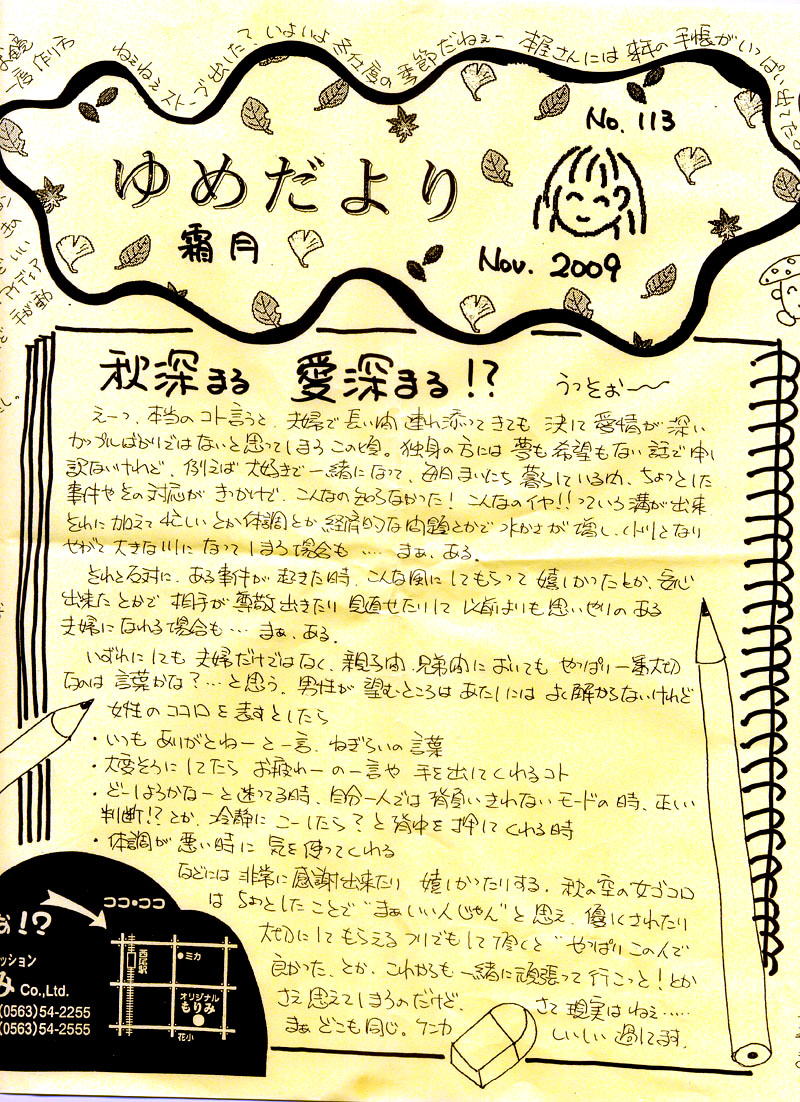 お鏡
一度 作り方
ねぇねぇストーブ出した?いよいよ冬仕度の季節だねぇー 本屋さんには 来年の手帳がいっぱい出てた
No. 113
ゆめだより
霜月
Nov. 2009
いい
アイディア
手が動
秋深まる 愛深まる!?
うっそぉ〜〜
えーっ、本当のコト言うと、夫婦で長い間 連れ添ってきても 決して愛情が深い
カップルばかりではないと思ってしまう この頃。独身の方には 夢も希望もない話で申し
訳ないけれど、例えば 大好きで一緒になって、毎日まいにち 暮らしている内、ちょっとした
事件やその対応が きっかけで、こんなの知らなかった!こんなのイヤ!!っていう溝が出来
それに加えて 忙しいとか 体調とか 経済的な問題とかで 水かさが増し、小川となり
やがて 大きな川に なってしまう場合も …… まぁ、ある。
それと反対に、ある事件が 起きた時、こんな風に してもらって 嬉しかったとか、安心
出来たとかで 相手が 尊敬出きたり 見直せたりして 以前よりも思いやりのある
夫婦になれる場合も… まぁ、ある。
いずれにしても 夫婦だけではなく、親子間、兄弟間においても やっぱり一番大切
なのは 言葉かな?…と思う。男性が 望むところは あたしには よく解からないけれど
女性のココロを表すとしたら
・いつも ありがとねーと一言、ねぎらいの言葉
・大変そうにしてたら お疲れーの一言や 手を出してくれるコト
・どーしようかなーと迷ってる時、自分一人では 背負いきれないモードの時、正しい
判断!?とか、冷静に こーしたら?と背中を押してくれる時
・体調が悪い時に 気を使ってくれる
などには 非常に感謝出来たり 嬉しかったりする。秋の空の女ゴコロ
は ちょっとしたことで“まぁいい人じゃん”と思え、優しくされたり
大切にしてもらえるフリでもして頂くと“やっぱりこの人で
良かった、とか、これからも 一緒に頑張って行こっと!とか
さえ思えてしまうのだけど、 さて現実はねぇ……
まぁ どこも同じ。ケンカ しいしい 過してます。
ぉ!?
ココ・ココ
ッション
み Co.,Ltd.
(0563)54-2255
(0563)54-5555
西尾駅
ミカ
オリジナル
もりみ
花小